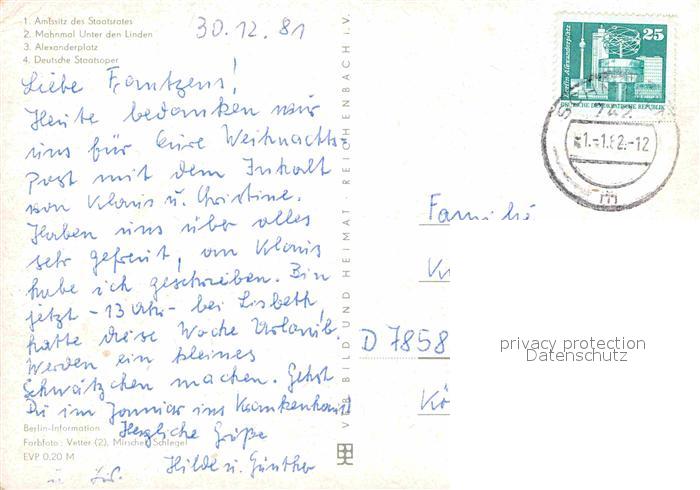 1. Amtssitz des Staatsrates
2. Mahnmal Unter den Linden
3. Alexanderplatz
4. Deutsche Staatsoper
30.12.81
Liebe Frantzens!
Heute bedanken wir
uns für Eure Weihnachts-
post mit dem Inhalt
von Klaus u. Christine.
Haben uns über alles
sehr gefreut, an Klaus
habe ich geschrieben. Bin
jetzt -13 Uhr- bei Lisbeth,
hatte diese Woche Urlaub.
Werden ein kleines
Schwätzchen machen. Gehst
Du im Januar ins Krankenhaus?
Herzliche Grüße
Hilde u. Günther
Berlin-Information
Farbfoto: Vetter (2), Mirschel, Schlegel
EVP 0,20 M
VEB BILD UND HEIMAT REICHENBACH i. V.
25
Berlin, Alexanderplatz
DEUTSCHE DEMOKRATISCHE REPUBLIK
-1.-1.82.-12
m
Familie
D 7858
Kö
privacy protection
Datenschutz